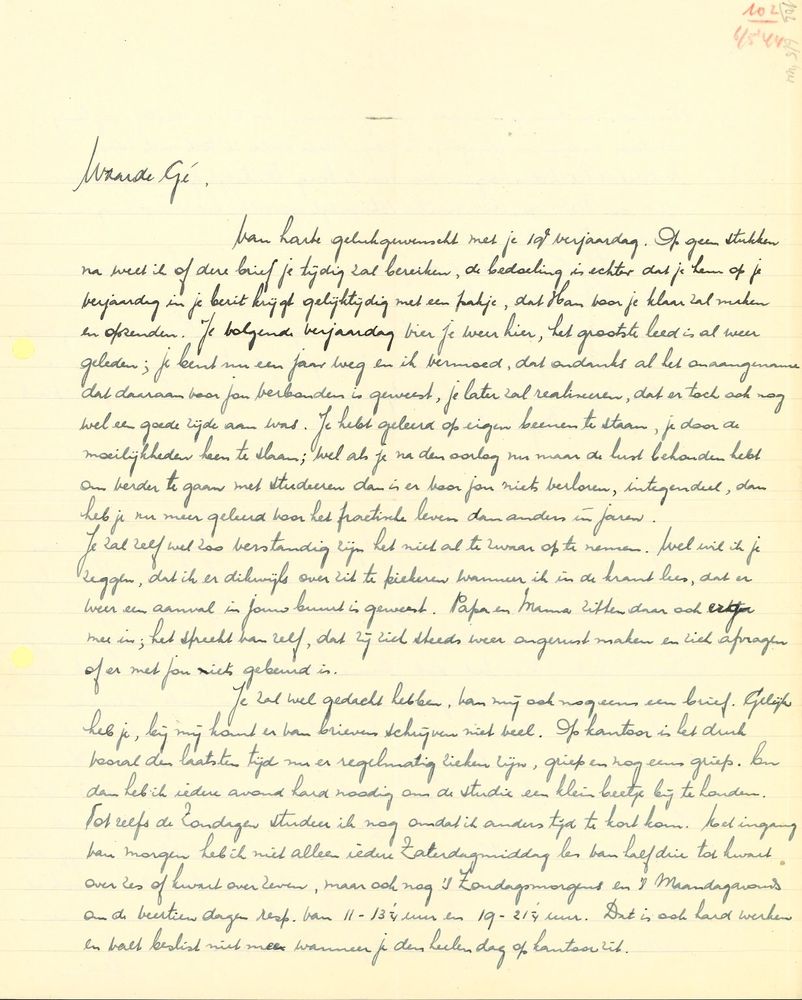 102
6/5 '44
102
6/5 '44
Waarde Gé,
Van harte gelukgewenscht met je 19e verjaardag. Op geen stukken
na weet ik of deze brief je tijdig zal bereiken, de bedoeling is echter dat je hem op je
verjaardag in je bezit krijgt gelijktijdig met een pakje, dat Han voor je klaar zal maken
en opzenden. Je volgende verjaardag vier je weer hier, het grootste leed is al weer
geleden; je bent nu een jaar weg en ik vermoed, dat ondanks al het onaangename
dat daaraan voor jou verbonden is geweest, je later zal realiseren, dat er toch ook nog
wel een goede zijde aan was. Je hebt geleerd op eigen beenen te staan, je door de
moeilijkheden heen te slaan; wel als je na den oorlog nu maar de lust behouden hebt
om verder te gaan met studeeren dan is er voor jou niets verloren, integendeel, dan
heb je nu meer geleerd voor het practische leven dan anders in jaren.
Je zal zelf wel zoo verstandig zijn het niet al te zwaar op te nemen. Wel wil ik je
zeggen, dat ik er dikwijls over zit te piekeren wanneer ik in de krant lees, dat er
weer een aanval in jouw buurt is geweest. Papa en Mama zitten daar ook
mee in; het spreekt van zelf, dat zij zich steeds weer ongerust maken en zich afvragen
of er met jou niets gebeurd is.
Je zal wel gedacht hebben, van mij ook nog eens een brief. Gelijk
heb je, bij mij komt er van brieven schrijven niet veel. Op kantoor is het druk
vooral den laatsten tijd nu er regelmatig zieken zijn, griep en nog eens griep. En
dan heb ik iedere avond hard noodig om de studie een klein beetje bij te houden.
Tot zelfs de Zondagen studeer ik nog omdat ik anders tijd te kort kom. Met ingang
van morgen heb ik niet alleen iedere Zaterdagmiddag les van half drie tot kwart
over zes of kwart over zeven, maar ook nog 's Zondagsmorgens en 's Maandagavonds
om de veertien dagen resp. van 11 - 13¼ uur en 19 - 21¼ uur. Dat is ook hard werken
en valt beslist niet mee wanneer je den heelen dag op kantoor zit.